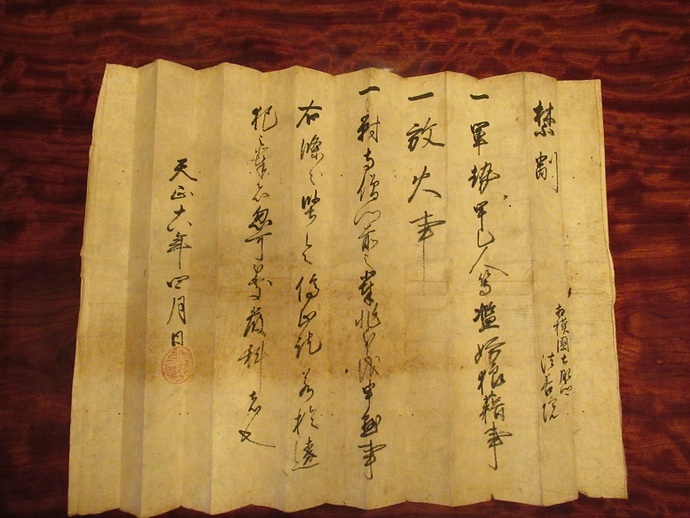 禁制
相模國土肥
法善院
一軍勢甲乙人等濫妨狼藉事
一放火事
一對寺僧門前之輩非分儀申懸事
右條々堅令停止訖若於違
犯之輩者忽可被處嚴科者也
天正十八年四月日